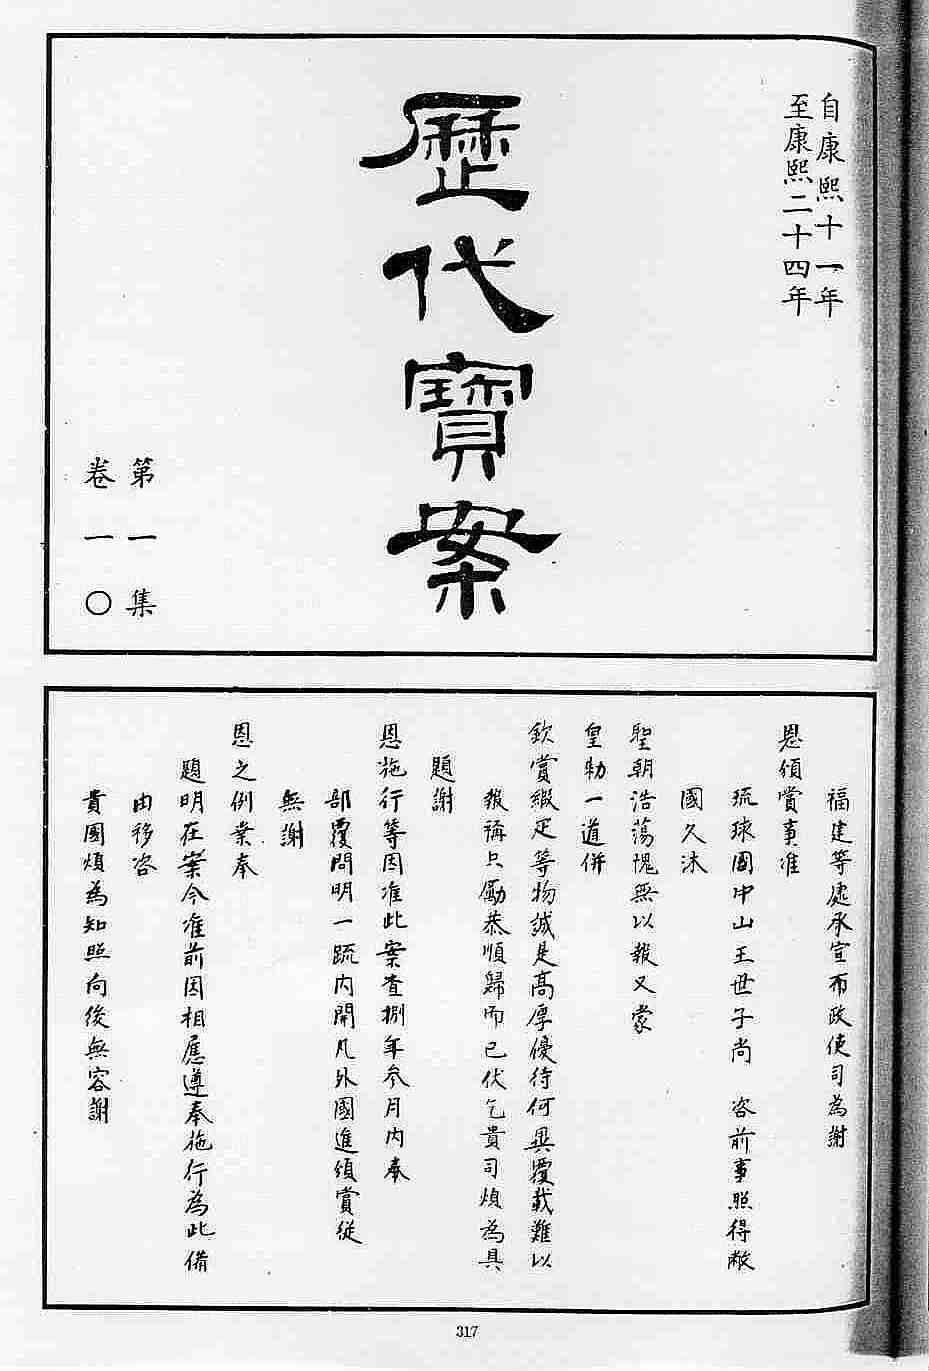 自康熙十一年
至康熙二十四年
歷代寶案
第一集
卷一〇
福建等處承宣布政使司為謝
恩頒賞事准
琉球國中山王世子尚 咨前事照得敝
國久沐
聖朝浩蕩愧無以報又蒙
皇勅一道併
欽賞緞疋等物誠是高厚優待何異覆載難以
報稱只勵恭順歸而已伏乞貴司煩為具
題謝
恩施行等因准此案查捌年叁月內奉
部覆問明一疏內開凡外國進頒賞從
無謝
恩之例業奉
題明在案今准前因相應遵奉施行為此備
由移咨
貴國煩為知照向後無容謝
317